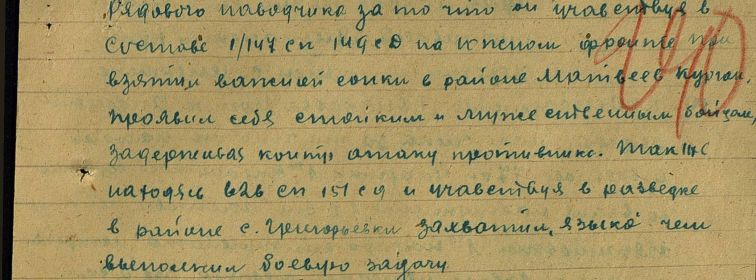 Рядового наводчика за то что он учавствуя в
составе 1/147 сп 149 сд на южном фронте при
взятии важной сопки в районе Матвеев Курган,
проявил себя стойким и мужественным бойцом,
задерживая контр атаку противника. Так же
находясь в 626 сп 151 сд и учавствуя в разведке
в районе с. Григорьевки захватил "языка" чем
выполнил боевую задачу